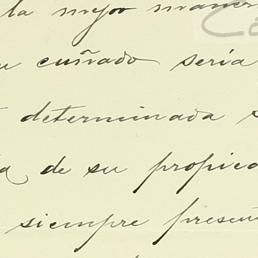 la mejor maner
u cuñado sería
determinada s
a de su propied
siempre presen